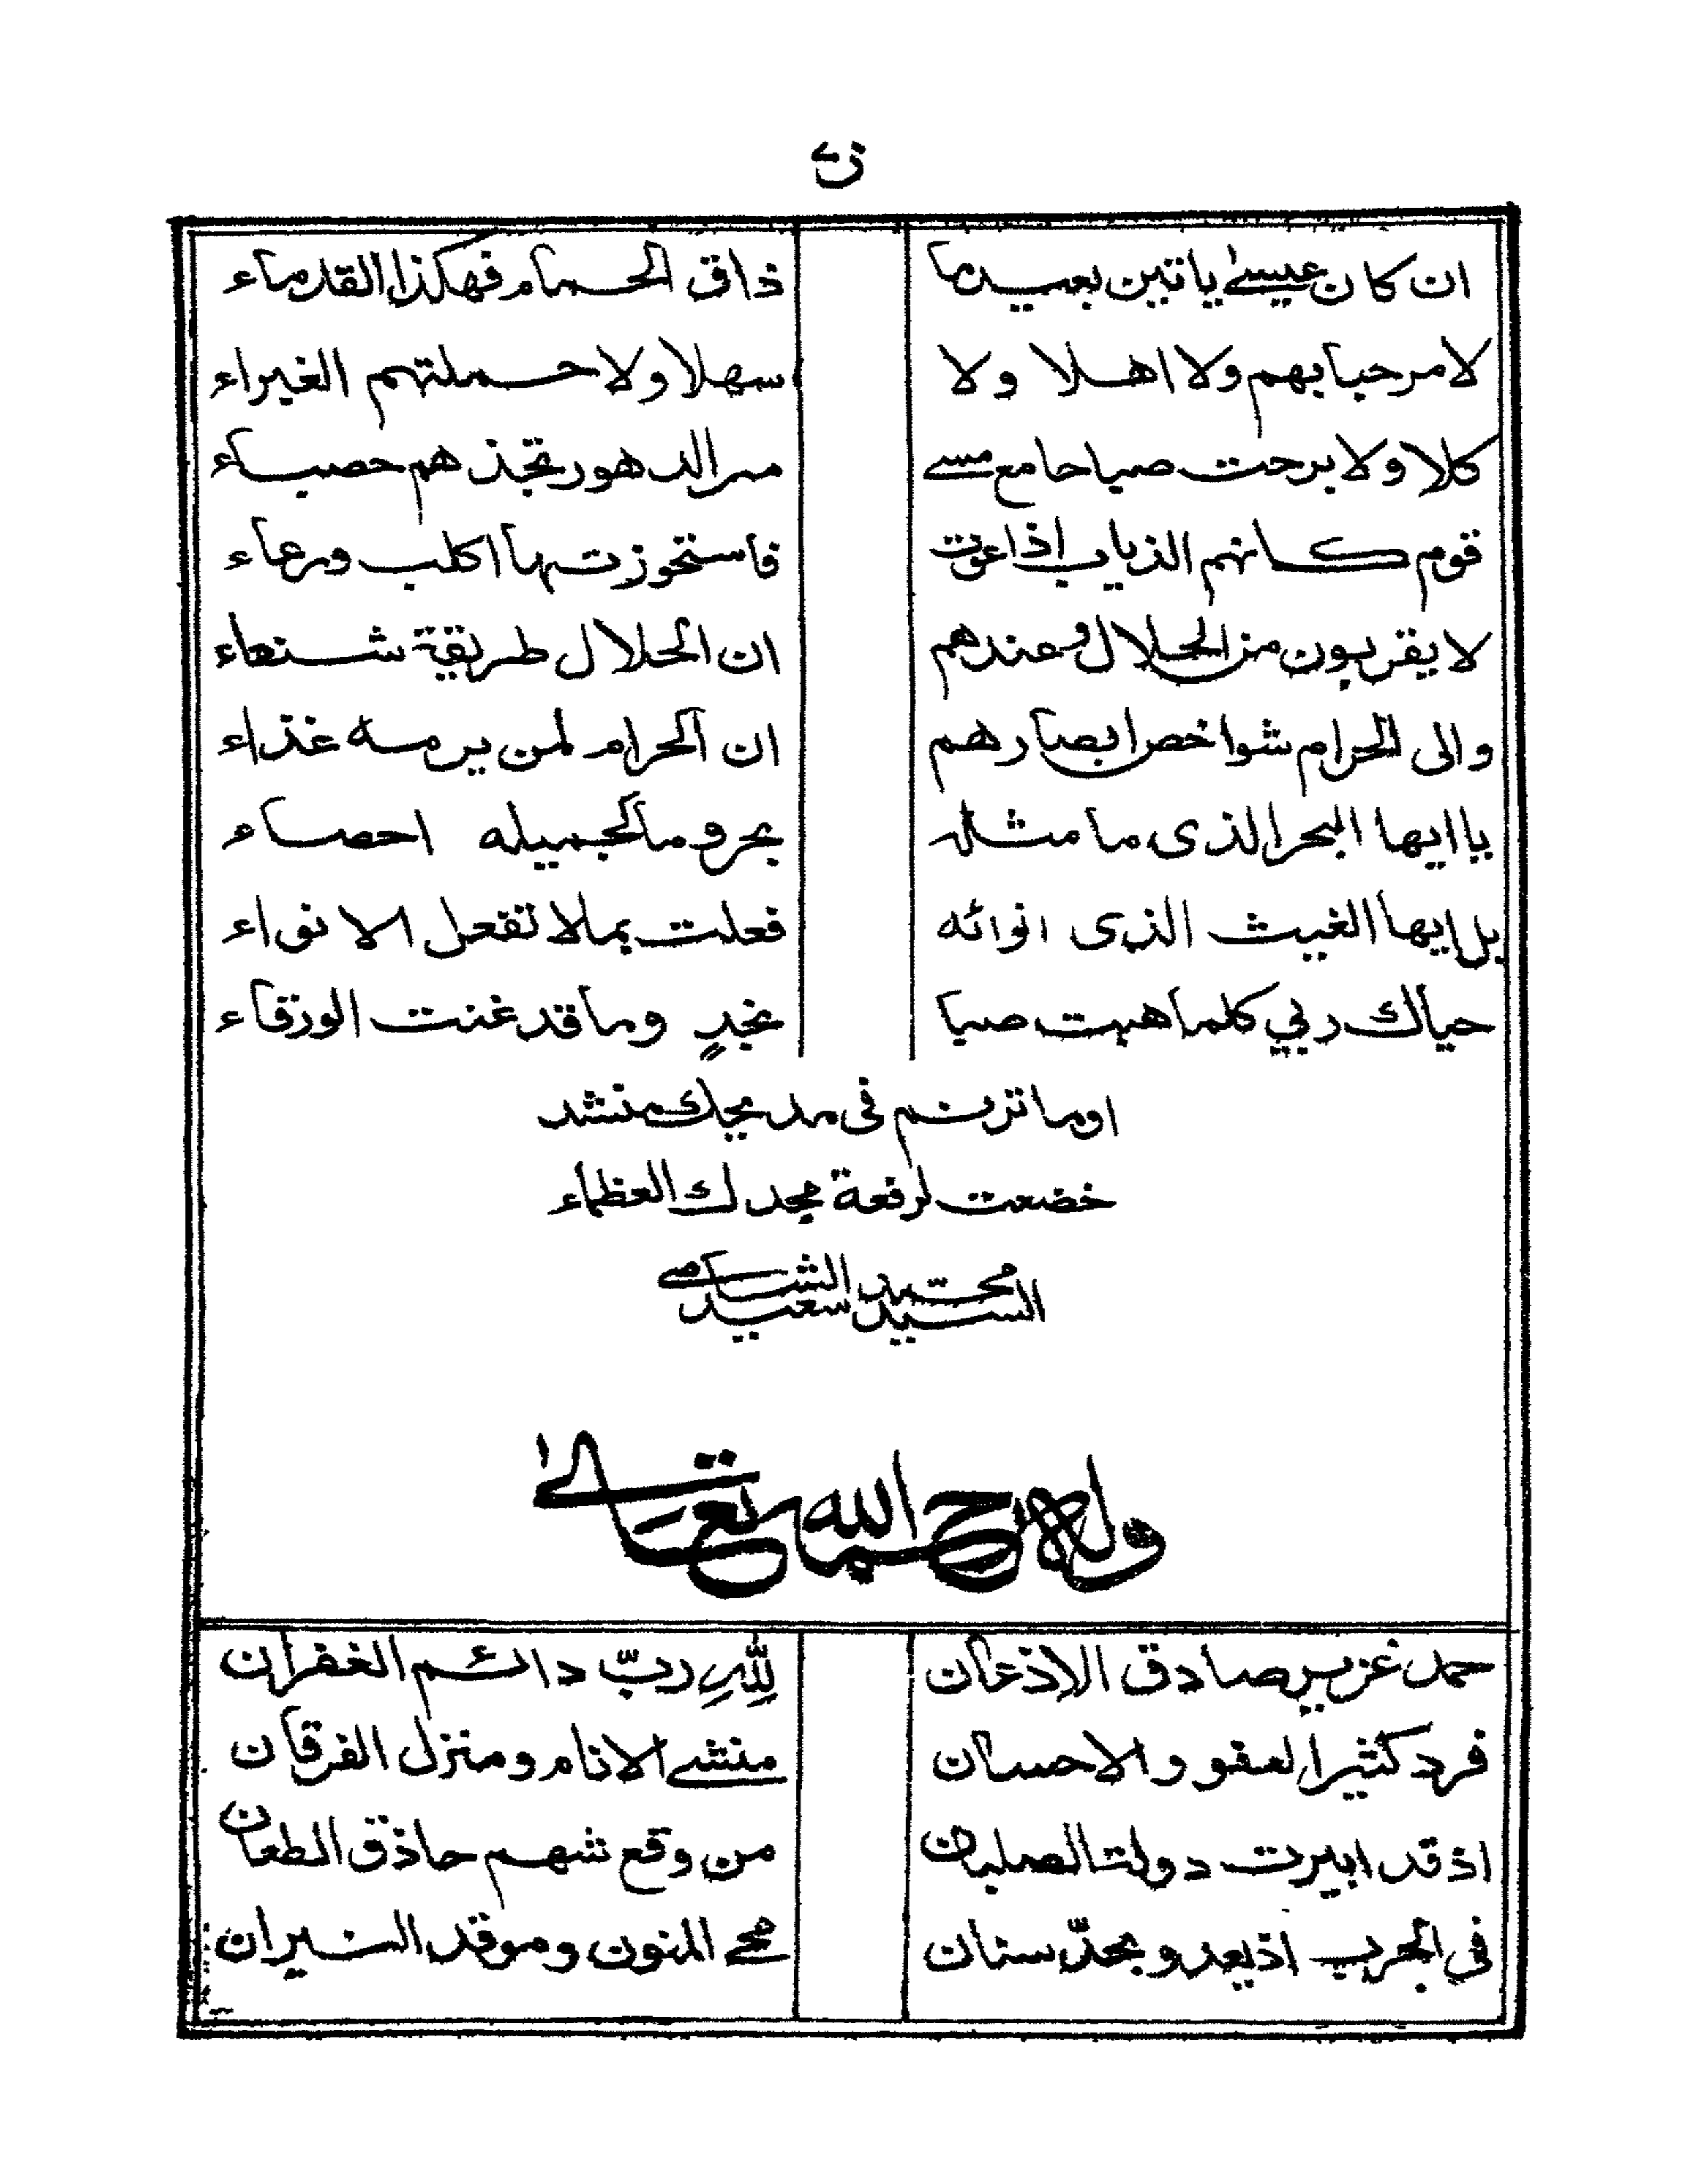 ن
ان كان عيسىٰ ياتين بعيدما ذاق الحمام فهكذا القدماء
لا مرحبا بهم ولا اهلا ولا سهلا ولا حملتهم الغبراء
كلا ولا برحت صباحا مع مسے مر الدهور تجذهم حصباء
قوم كانهم الذياب اذا عوت فاستحوزتها اكلب ورعاء
لا يقربون من الحلال وعندهم ان الحلال طريقة شنعاء
والى الحرام شواخص ابصارهم ان الحرام لمن يرمه غذاء
يا ايها البحر الذى ما مثله بحر وما لجميله احصاء
بل ايها الغيث الذى انوائه فعلت بملا تفعل الانواء
حياك ربي كلما هبت صبا بنجدٍ وما قد غنت الورقاء
اوما ترنم فى مديحك منشد
خضعت لرفعة مجدك العظماء
السيد محمد سعيد الشامى
وله رحمه الله تعالىٰ
حمد عزيز صادق الاذعان للهِ ربّ دائم الغفران
فرد كثير العفو والاحسان منشے الانام ومنزل الفرقان
اذ قد ابيرت دولة الصلبان من وقع شهم حاذق الطعان
فى الحرب اذ يعد وبحدّ سنان محے المنون وموقد النيران